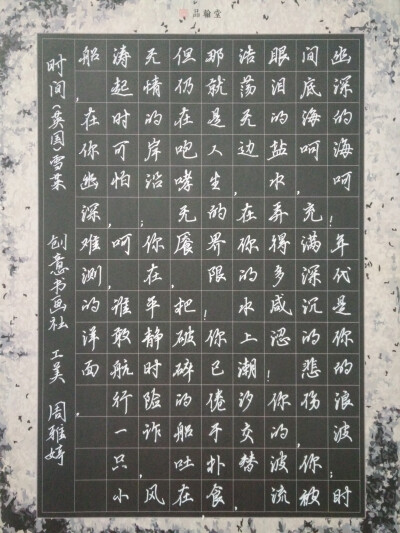 品翰堂
幽深的海呵！年代是你的浪波；时
间底海呵，充满深沉的悲伤，你被
眼泪的盐水，弄得多咸涩！你的波流
浩荡无边，在你的水上潮汐交替，
那就是人生的界限！你已倦于扑食，
但仍在咆哮无餍，把破碎的船吐在
无情的岸沿；你在平静时险诈，风
涛起时可怕，呵谁敢航行一只小
船，在你幽深，难测的洋面
时间(英国)雪莱 创意书画社 工美 周雅婷